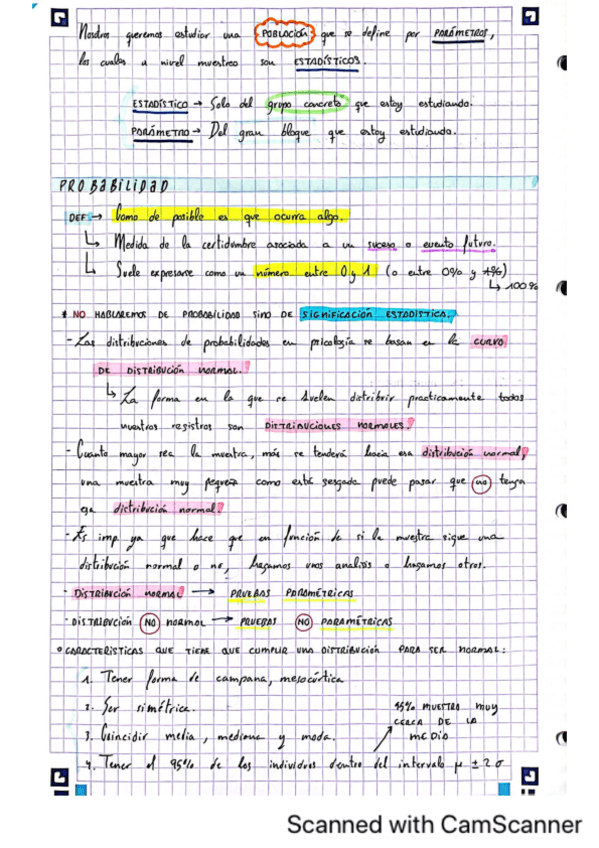 Nosotros queremos estudiar una POBLACIÓN que se define por PARÁMETROS,
los cuales a nivel muestreo son ESTADÍSTICOS.
ESTADÍSTICO → Solo del grupo concreto que estoy estudiando.
PARÁMETRO → Del gran bloque que estoy estudiando.
PROBABILIDAD
DEF → Como de posible es que ocurra algo.
↳ Medida de la certidumbre asociada a un suceso o evento futuro.
↳ Suele expresarse como un número entre 0 y 1 (o entre 0% y 1%)
↳ 100%
* NO HABLAREMOS DE PROBABILIDAD SINO DE SIGNIFICACIÓN ESTADÍSTICA.
- Las distribuciones de probabilidades en psicología se basan en la CURVA
DE DISTRIBUCIÓN NORMAL.
↳ La forma en la que se suelen distribuir practicamente todos
nuestros registros son DISTRIBUCIONES NORMALES.
- Cuanto mayor sea la muestra, más se tenderá hacia esa distribución normal,
una muestra muy pequeña como está sesgada puede pasar que no tenga
esa distribución normal.
- Es imp. ya que hace que en función de si la muestra sigue una
distribución normal o no, hagamos unos analisis o hagamos otros.
- DISTRIBUCIÓN NORMAL → PRUEBAS PARAMÉTRICAS
- DISTRIBUCIÓN NO NORMAL → PRUEBAS NO PARAMÉTRICAS
• CARACTERÍSTICAS QUE TIENE QUE CUMPLIR UNA DISTRIBUCIÓN PARA SER NORMAL:
1. Tener forma de campana, mesocúrtica
2. Ser simétrica.
3. Coincidir media, mediana y moda.
95% MUESTRA MUY
CERCA DE LA
MEDIA
4. Tener el 95% de los individuos dentro del intervalo μ ± 2σ
Scanned with CamScanner